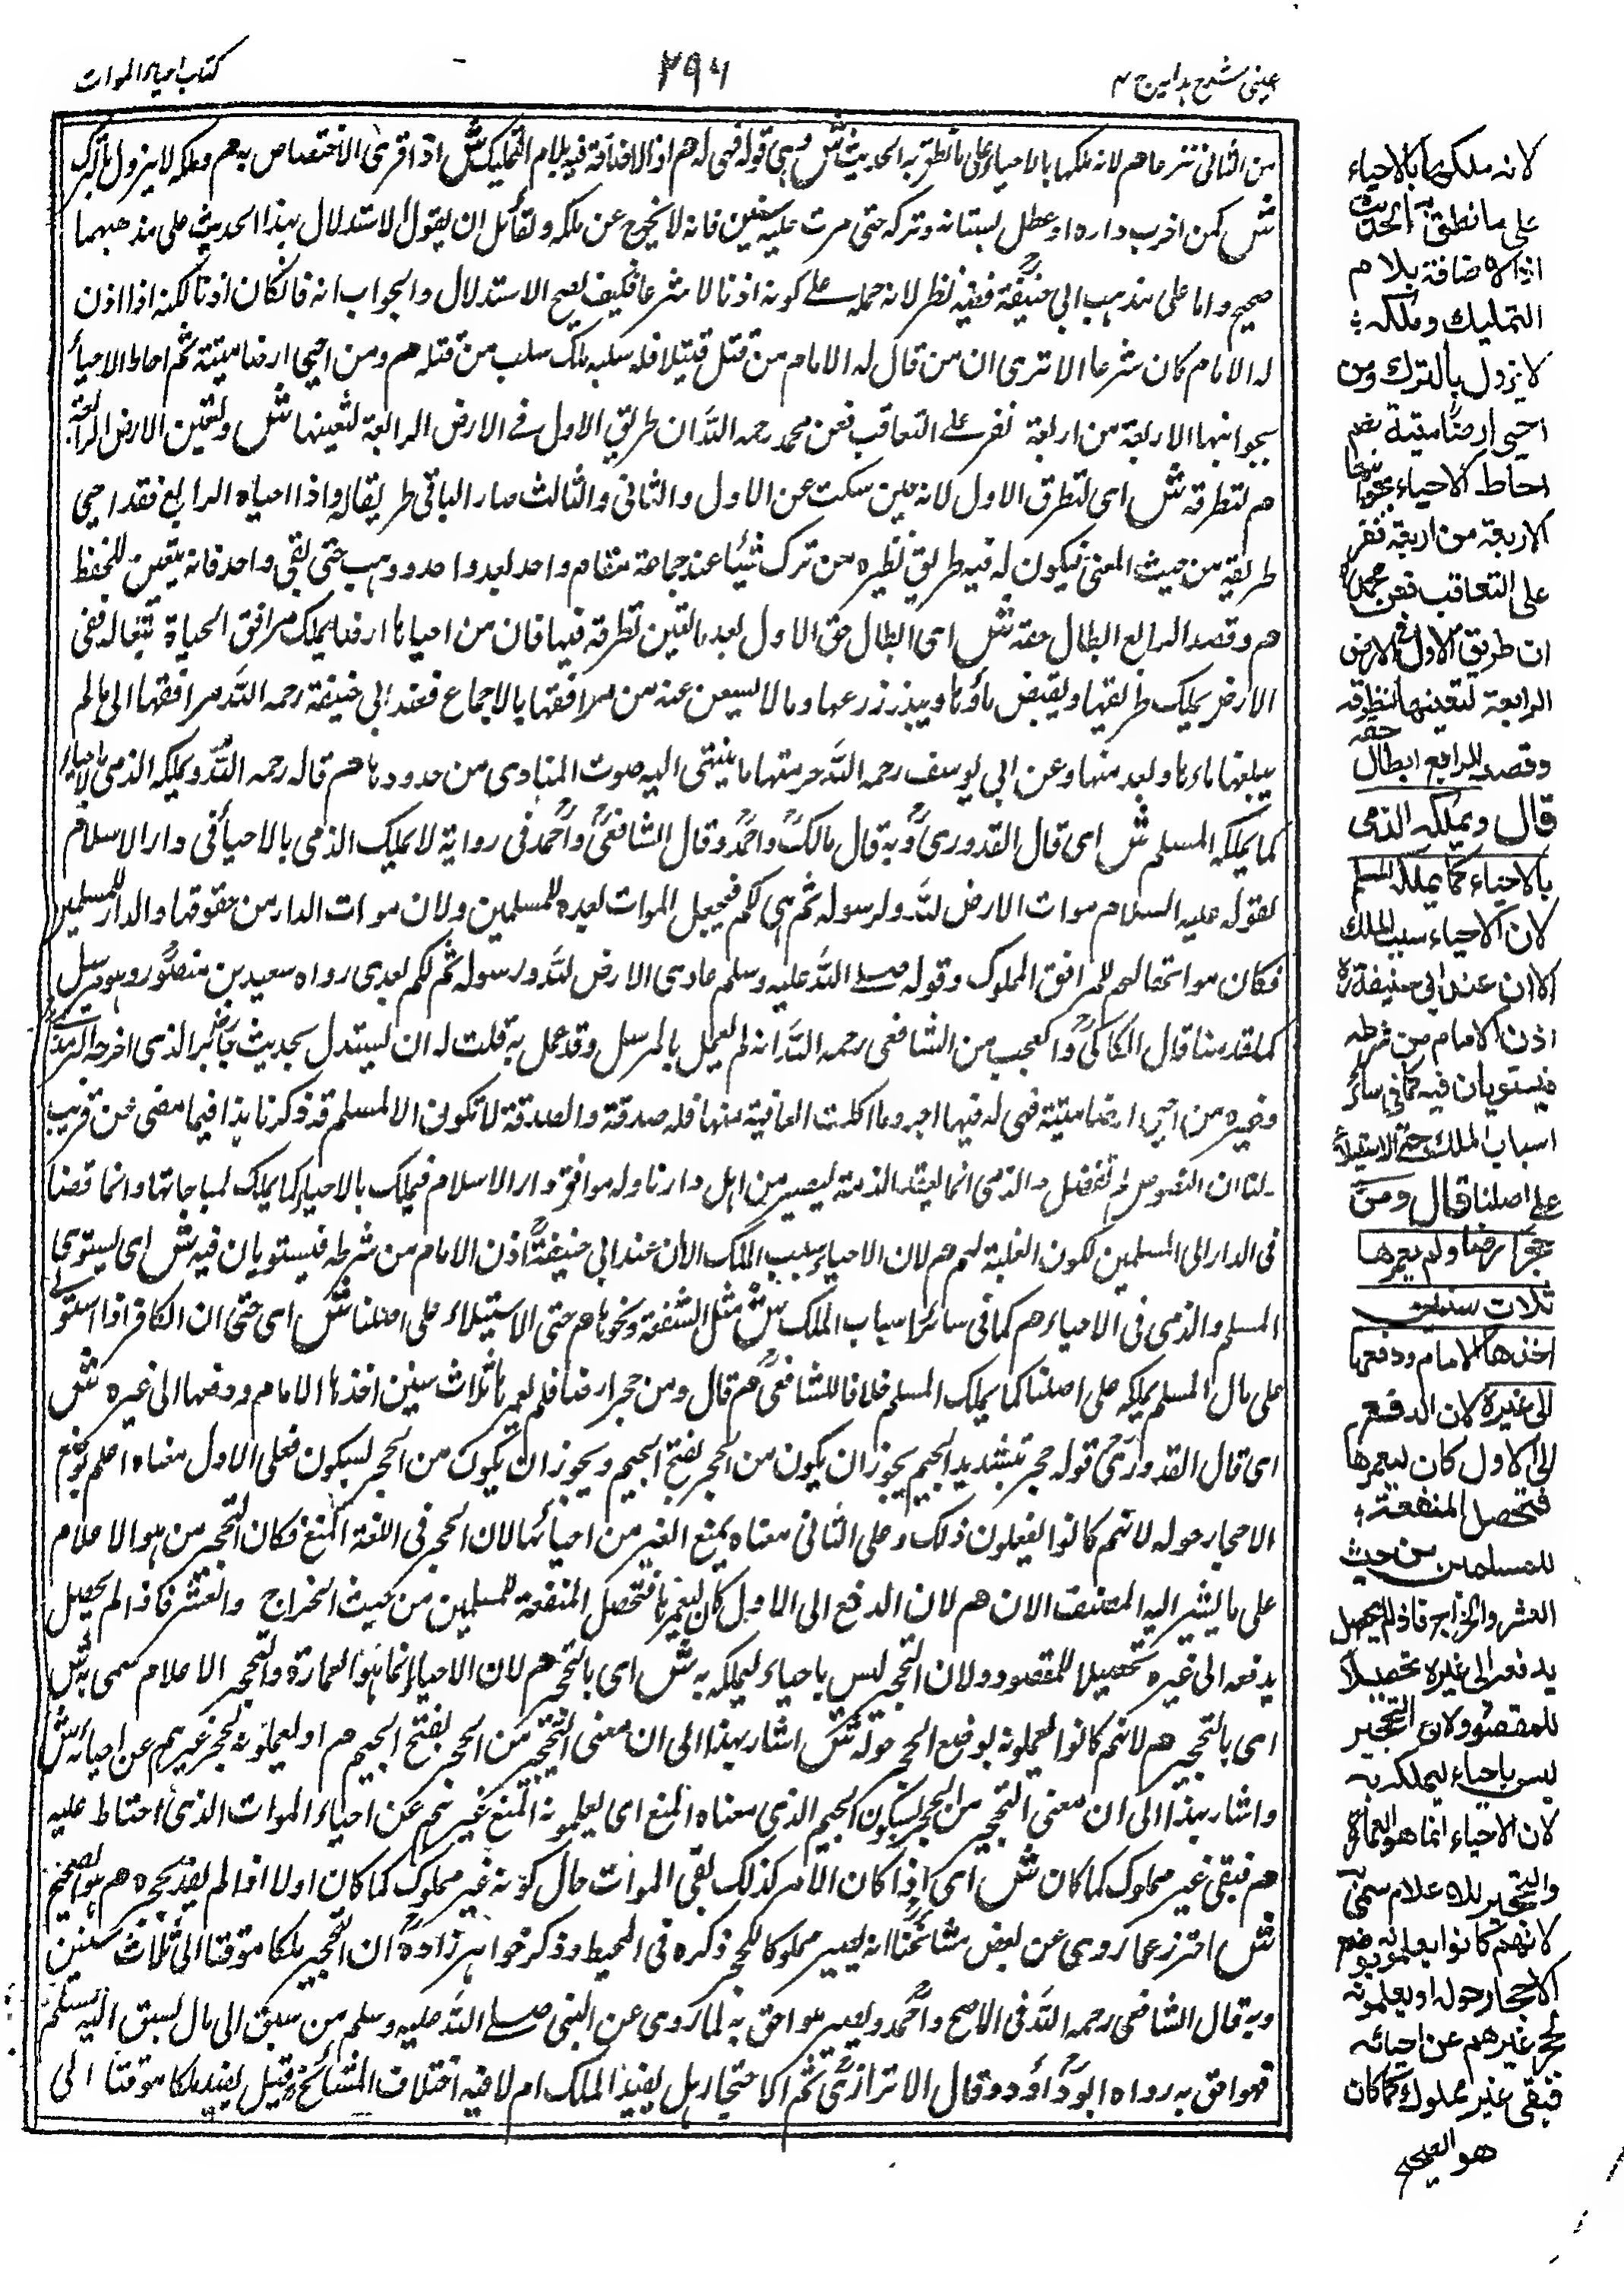 عینی شرح ہدایہ ج ۴
۲۹۶
کتاب احیاء الموات
من الثانی تنزعہا هم لانہ ملکہا بالاحیاء علی ما نطق بہ الحدیث ش وہی قولہ فہی لہ هم اذ الاضافۃ فیہ بلام التملیک ش اذ اقری الاختصاص بہ هم وملکہ لا یزول بالترک
ش کمن اخرب دارہ او عطل بستانہ وترکہ حتی مرت علیہ سنین فانہ لا یخرج عن ملکہ ولقائل ان یقول الاستدلال بہذا الحدیث علی مذهبهما
صحیح واما علی مذہب ابی حنیفۃؒ ففیہ نظر لانہ حملہ علے کونہ اذنا لا شرعا فکیف یصح الاستدلال والجواب انہ فان کان اذنا لکنہ اذا اذن
لہ الامام کان شرعا الا تری ان من قال لہ الامام من قتل قتیلا فلہ سلبہ ملک سلب من قتلہ هم ومن احیی ارضا میتۃ ثم احاط الاحیاء
بجوانبہا الاربعۃ من اربعۃ نفر علے التعاقب فعن محمد رحمہ اللہ ان طریق الاول فے الارض الرابعۃ لتعینہا ش ولتعین الارض الرابعۃ
هم لتطرقہ ش ای لتطرق الاول لانہ حین سکت عن الاول والثانی والثالث صار الباقی طریقا لہ واذا احیاہ الرابع فقد احیی
طریقہ من حیث المعنی فیکون لہ فیہ طریق نظیرہ من ترک شیئا عند جماعۃ فقام واحد بعد واحد وذہب حتی بقی واحد فانہ یتعین للحفظ
هم وقصد الرابع ابطال حقہ ش ای ابطال حق الاول بعد ما تعین تطرقہ فیہا فان من احیا ہا ارضا یملک مرافق الحیاۃ تبعا لہ ففی
الارض یملک طریقہا ویقبض ماؤہا ویبذر زرعہا وما لا یستغنی عنہ من مرافقہا بالاجماع فعند ابی حنیفۃ رحمہ اللہ مرافقہا الی ما لم
یبلغہا ماءہا وبعد منہا وعن ابی یوسف رحمہ اللہ حریمتہا ما ینتهی الیہ صوت المنادی من حدودہا هم قالہ رحمہ اللہ ویملکہ الذمی بالاحیاء
کما یملکہ المسلم ش ای قال القدوریؒ وبہ قال مالکؒ واحمدؒ وقال الشافعیؒ واحمد فی روایۃ لا یملک الذمی بالاحیاء فی دار الاسلام
لقولہ علیہ السلام موات الارض للہ ولرسولہ ثم ہی لکم فجعل الموات بعدہ للمسلمین ولان موات الدار من حقوقہا والدار للمسلمین
فکان مواتہا لہم کمرافق المملوک وقولہ صلے اللہ علیہ وسلم عادی الارض للہ ورسولہ ثم لکم بعدی رواہ سعید بن منصور وہو مرسل
قال الکاکیؒ والعجب من الشافعی رحمہ اللہ انہ لم یعمل بالمرسل وقد عمل بہ قلت لہ ان یستدل بحدیث جابر الذی اخرجہ الترمذی
وغیرہ من احیی ارضا میتۃ فهی لہ فیہا اجر وما اکلت العافیۃ منہا فلہ صدقۃ والصدقۃ لا تکون الا لمسلم قد ذکرنا ہذا فیما مضی عن قریب
لنا ان النصوص لم تفصل والذمی انما بعقد الذمۃ لیصیر من اہل دارنا ولہ موافق دار الاسلام فیملک بالاحیاء کما یملک لمباحاتہا وانما قضا
فی الدار الی المسلمین لکون الغلبۃ لہم هم لان الاحیاء سبب الملک الا ان عند ابی حنیفۃؒ اذن الامام من شرطہ فیستویان فیہ ش ای یستوی
المسلم والذمی فی الاحیاء هم کما فی سائر اسباب الملک ش مثل الشفعۃ ونحوہا هم حتی الاستیلاء علی اصلنا ش ای حتی ان الکافر اذا استولے
علی مال المسلم یملکہ علی اصلنا کما یملک المسلم خلافا للشافعیؒ هم قال ومن حجر ارضا فلم یعمرہا ثلاث سنین اخذہا الامام ودفعہا الی غیرہ ش
ای قال القدوریؒ قولہ حجر بتشدید الجیم یجوز ان یکون من الحجر بفتح الجیم ویجوز ان یکون من الحجر بسکون فعلی الاول معناہ اعلم بوضع
الاحجار حولہ لانہم کانوا یفعلون ذلک وعلی الثانی معناہ یمنع الغیر من احیائہا لان الحجر فی اللغۃ المنع فکان التحجیر من ہو الاعلام
علی ما یشیر الیہ المصنف الان هم لان الدفع الی الاول کان لیعمرہا فتحصل المنفعۃ للمسلمین من حیث الخراج والعشر فاذا لم یحصل
یدفعہ الی غیرہ تحصیلا للمقصود ولان التحجیر لیس باحیاء لیملکہ بہ ش ای بالتحجیر هم لان الاحیاء انما ہو العمارۃ والتحجیر الاعلام سمی بہ ش
ای بالتحجیر هم لانہم کانوا یعلمونہ بوضع الحجر حولہ ش اشار بہذا الی ان معنی التحجیر من الحجر بفتح الجیم هم او یعلمونہ لحجر غیرہم عن احیائہ ش
واشار بہذا الی ان معنی التحجیر من الحجر بسکون الجیم الذی معناہ المنع ای یعلمونہ المنع غیرہم عن احیاء الموات الذی احتاط علیہ
هم فبقی غیر مملوک کما کان ش ای اذا کان الامر کذلک بقی الموات حال کونہ غیر مملوک کما کان اولا اذا لم یفد تحجرہ هم ہو الصحیح
ش احترز عما روی عن بعض مشائخنا انہ یصیر مملوکا للحجر ذکرہ فی المحیط وذکر خواہر زادہؒ ان التحجیر ملکا موقتا الی ثلاث سنین
وبہ قال الشافعی رحمہ اللہ فی الاصح واحمدؒ ویصیر ہو احق بہ لما روی عن النبی صلے اللہ علیہ وسلم من سبق الی مال یسبق الیہ مسلم
فہو احق بہ رواہ ابو داؤد وقال الاترازیؒ ثم الاحتجار ہل یفید الملک ام لا فیہ اختلاف المشائخ قیل یفید ملکا موقتا الی
لانہ ملکہا بالاحیاء
علی ما نطق بہ الحدیث
اذ الاضافۃ بلام
التملیک وملکہ
لا یزول بالترک ومن
احیی ارضا میتۃ ثم
احاط الاحیاء بجوانبها
الاربعۃ من اربعۃ نفر
علی التعاقب فعن محمدؒ
ان طریق الاول فی الارض
الرابعۃ لتعینها لتطرقہ
وقصد الرابع ابطال حقہ
قال ویملکہ الذمی
بالاحیاء کما یملکہ المسلم
لان الاحیاء سبب الملک
الا ان عند ابی حنیفۃؒ
اذن الامام من شرطہ
فیستویان فیہ کما فی سائر
اسباب الملک حتی الاستیلاء
علی اصلنا قال ومن
حجر ارضا ولم یعمرها
ثلاث سنین
اخذها الامام ودفعها
الی غیرہ لان الدفع
الی الاول کان لیعمرها
فتحصل المنفعۃ
للمسلمین من حیث
العشر والخراج فاذا لم یحصل
یدفعہ الی غیرہ تحصیلا
للمقصود ولان التحجیر
لیس باحیاء لیملکہ بہ
لان الاحیاء انما هو العمارۃ
والتحجیر للاعلام سمی بہ
لانهم کانوا یعلمونہ بوضع
الاحجار حولہ او یعلمونہ
لحجر غیرهم عن احیائہ
فبقی غیر مملوک کما کان
هو الصحیح